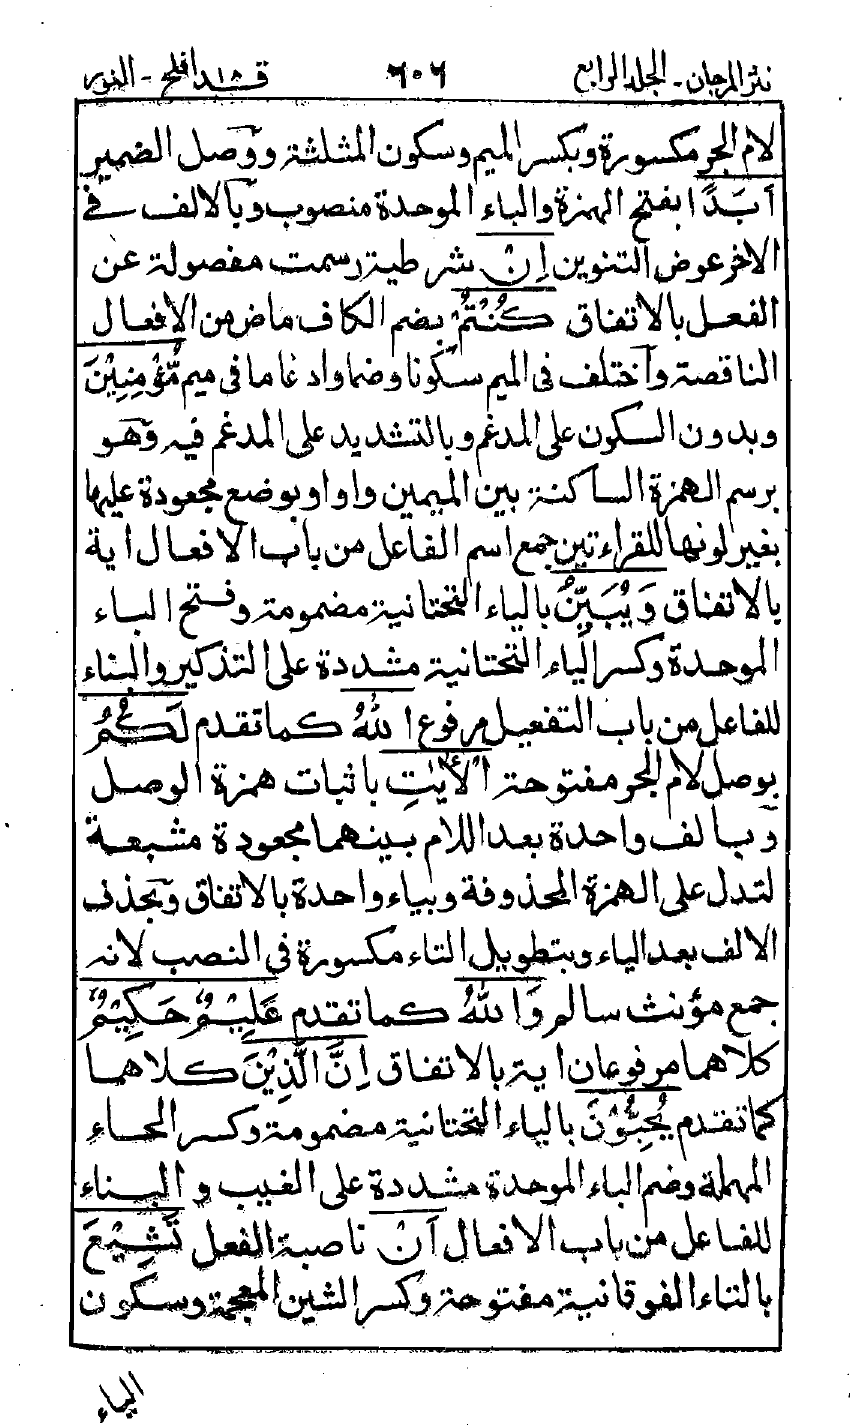 نثر المرجان - الجلد الرابع ٦٠٦ قد افلح ١٨ - النور
لام الجر مكسورة وبكسر الميم وسكون المثلثة ووصل الضمير
اَبَدًا بفتح الهمزة والباء الموحدة منصوب وبالالف في
الاخر عوض التنوين اِنْ شرطية رسمت مفصولة عن
الفعل بالاتفاق كُنْتُمْ بضم الكاف ماض من الافعال
الناقصة واختلف فى الميم سكونا وضما وادغاما فى ميم مُّؤْمِنِيْنَ
وبدون السكون على المدغم وبالتشديد على المدغم فيه وهو
برسم الهمزة الساكنة بين الميمين واوا وبوضع مجعودة عليها
بغير لونها للقراءتين جمع اسم الفاعل من باب الافعال اية
بالاتفاق وَيُبَيِّنُ بالياء التحتانية مضمومة وفتح الباء
الموحدة وكسر الياء التحتانية مشددة على التذكير والبناء
للفاعل من باب التفعيل مرفوع اللهُ كما تقدم لَكُمُ
بوصل لام الجر مفتوحة الْاٰيٰتِ باثبات همزة الوصل
وبالف واحدة بعد اللام بينهما مجعودة مشبعة
لتدل على الهمزة المحذوفة وبياء واحدة بالاتفاق وبحذف
الالف بعد الياء وبتطويل التاء مكسورة فى النصب لانه
جمع مؤنث سالم وَاللهُ كما تقدم عَلِيْمٌ حَكِيْمٌ
كلاهما مرفوعان اية بالاتفاق اِنَّ الَّذِيْنَ كلاهما
كما تقدم يُحِبُّوْنَ بالياء التحتانية مضمومة وكسر الحاء
المهملة وضم الباء الموحدة مشددة على الغيب والبناء
للفاعل من باب الافعال اَنْ ناصبة الفعل تَشِيْعَ
بالتاء الفوقانية مفتوحة وكسر الشين المعجمة وسكون
الياء